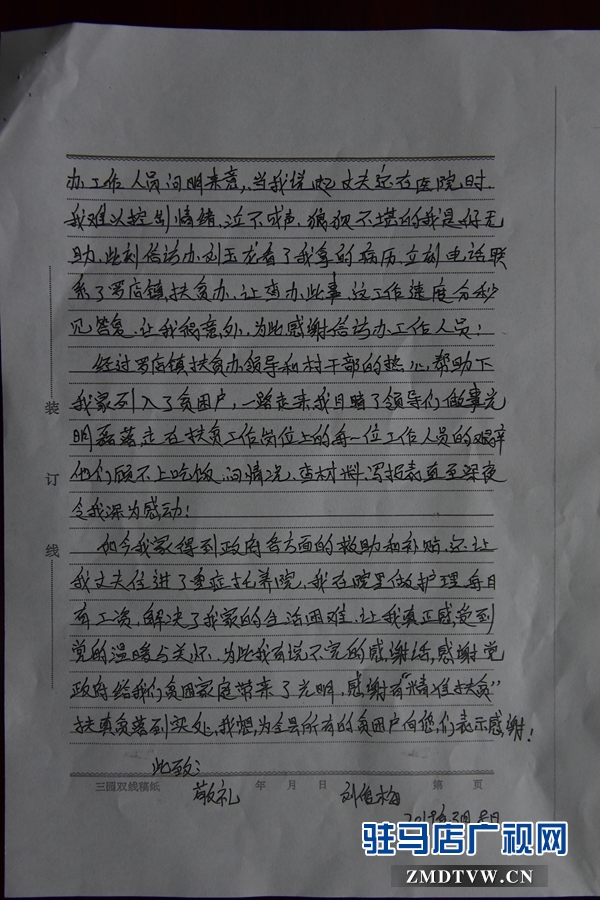 办工作人员问明来意,当我说起丈夫还在医院时.
我难以控制情绪.泣不成声.狼狈不堪的我是好无
助.此刻信访办刘玉龙看了我拿的病历.立刻电话联
系了罗店镇扶贫办.让查办此事.这工作速度分秒
见答复.让我很意外,为此感谢信访办工作人员!
经过罗店镇扶贫办领导和村干部的热心帮助下
我家列入了贫困户,一路走来我目睹了领导们做事光
明磊落走在扶贫工作岗位上的每一位工作人员的艰辛
他们顾不上吃饭.问情况.查材料.写报表直至深夜
令我深为感动!
如今我家得到政府各方面的救助和补贴.还让
我丈夫住进了重症托养院,我在院里做护理.每月
有工资.解决了我家的生活困难.让我真正感受到
党的温暖与关怀.为此我有说不完的感谢话,感谢党
政府给我们贫困家庭带来了光明.感谢有“精准扶贫”
扶真贫落到实处,我想,为全县所有的贫困户向您们表示感谢!
此致:
敬礼
刘俊梅
三圆双线稿纸 年 月 日 第 页
装
订
线
驻马店广视网
ZMDTVW.CN